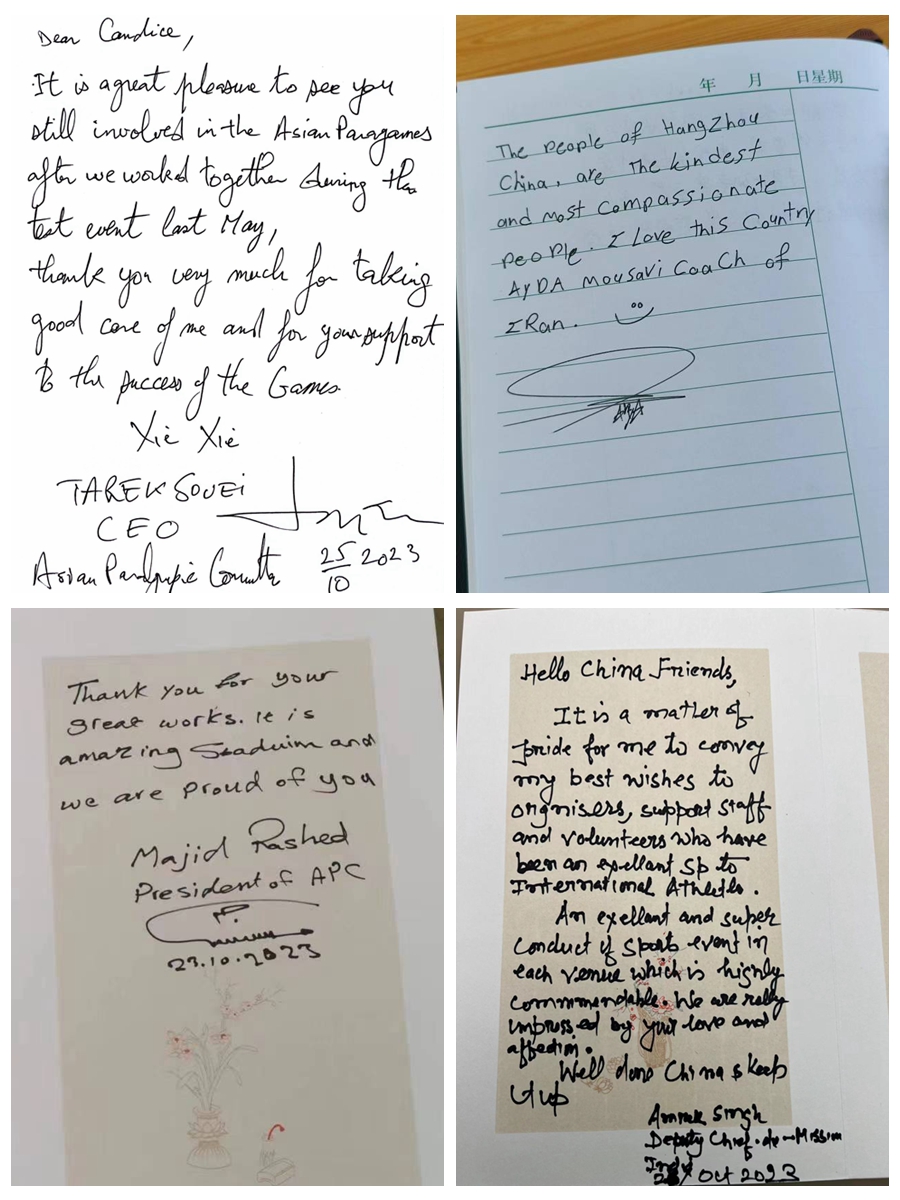 Dear Candice,
It is a great pleasure to see you
still involved in the Asian Paragames
after we worked together during the
test event last May,
thank you very much for taking
good care of me and for your support
to the success of the Games
Xiè Xiè
TAREK SOUEI
CEO
Asian Paralympic Committee
25/10 2023
年 月 日星期
The people of HangZhou
China, are The kindest
and most compassionate
people. I Love this Country
AyDA mousavi CoaCh of
IRan.
Thank you for your
great works. it is
amazing Staduim and
we are proud of you
Majid Rashed
President of APC
23.10.2023
Hello China Friends,
It is a matter of
pride for me to convey
my best wishes to
orgnisers, support staff
and volunteers who have
been an exellant sp to
International Athletes.
An exellant and super
conduct of sports event in
each venue which is highly
commmendable. We are really
impressed by your love and
affection.
Well done China & keep
it up
Singh
Deputy Chef-de-Mission
Oct 2023